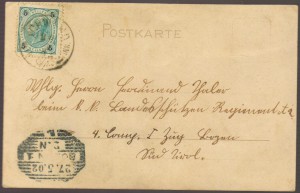 POSTKARTE
5 5
Wlg. Herrn Ferdinand Thaler
beim k. k. Landesschützen Regiment
4. Comp. 5 Zug Bozen
Süd Tirol.
1
27.5.02